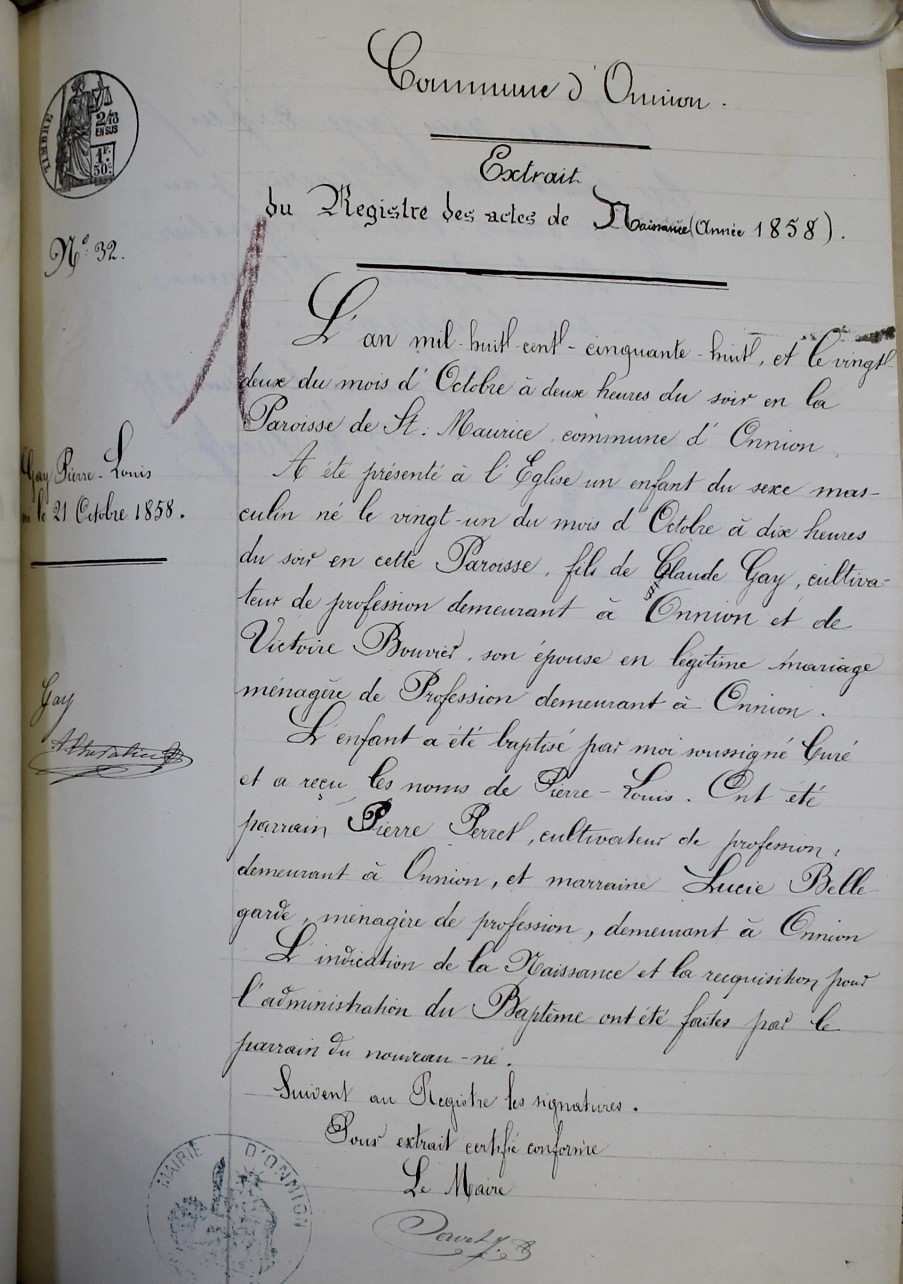 Commune d'Onnion.
Extrait
du Registre des actes de Naissance (Année 1858).
TIMBRE
2/10
EN SUS
1F.
50c.
N° 32.
L'an mil-huit-cent-cinquante-huit, et le vingt-
deux du mois d'Octobre à deux heures du soir en la
Paroisse de St. Maurice, commune d'Onnion.
Gay Pierre-Louis
né le 21 Octobre 1858.
A été présenté à l'Eglise un enfant du sexe mas-
culin né le vingt-un du mois d'Octobre à dix heures
du soir en cette Paroisse, fils de Claude Gay, cultiva-
teur de profession demeurant à Onnion et de
Victoire Bouvier, son épouse en légitime mariage
ménagère de Profession demeurant à Onnion.
Gay
L'enfant a été baptisé par moi soussigné Curé
et a reçu les noms de Pierre-Louis. Ont été
parrain Pierre Perret, cultivateur de profession,
demeurant à Onnion, et marraine Lucie Belle-
garde, ménagère de profession, demeurant à Onnion
L'indication de la Naissance et la recquisition pour
l'administration du Baptême ont été faites par le
parrain du nouveau-né.
Suivent au Registre les signatures.
Pour extrait certifié conforme
Le Maire
MAIRIE D'ONNION